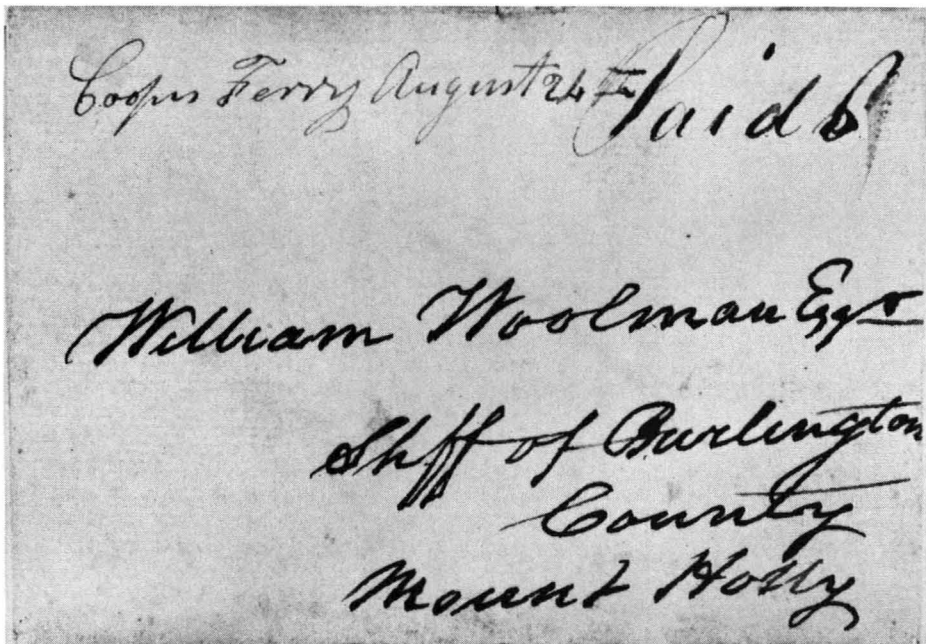 Coopers Ferry August 24th Paid 6
William Woolman Esqr
Shff of Burlington
County
Mount Holly